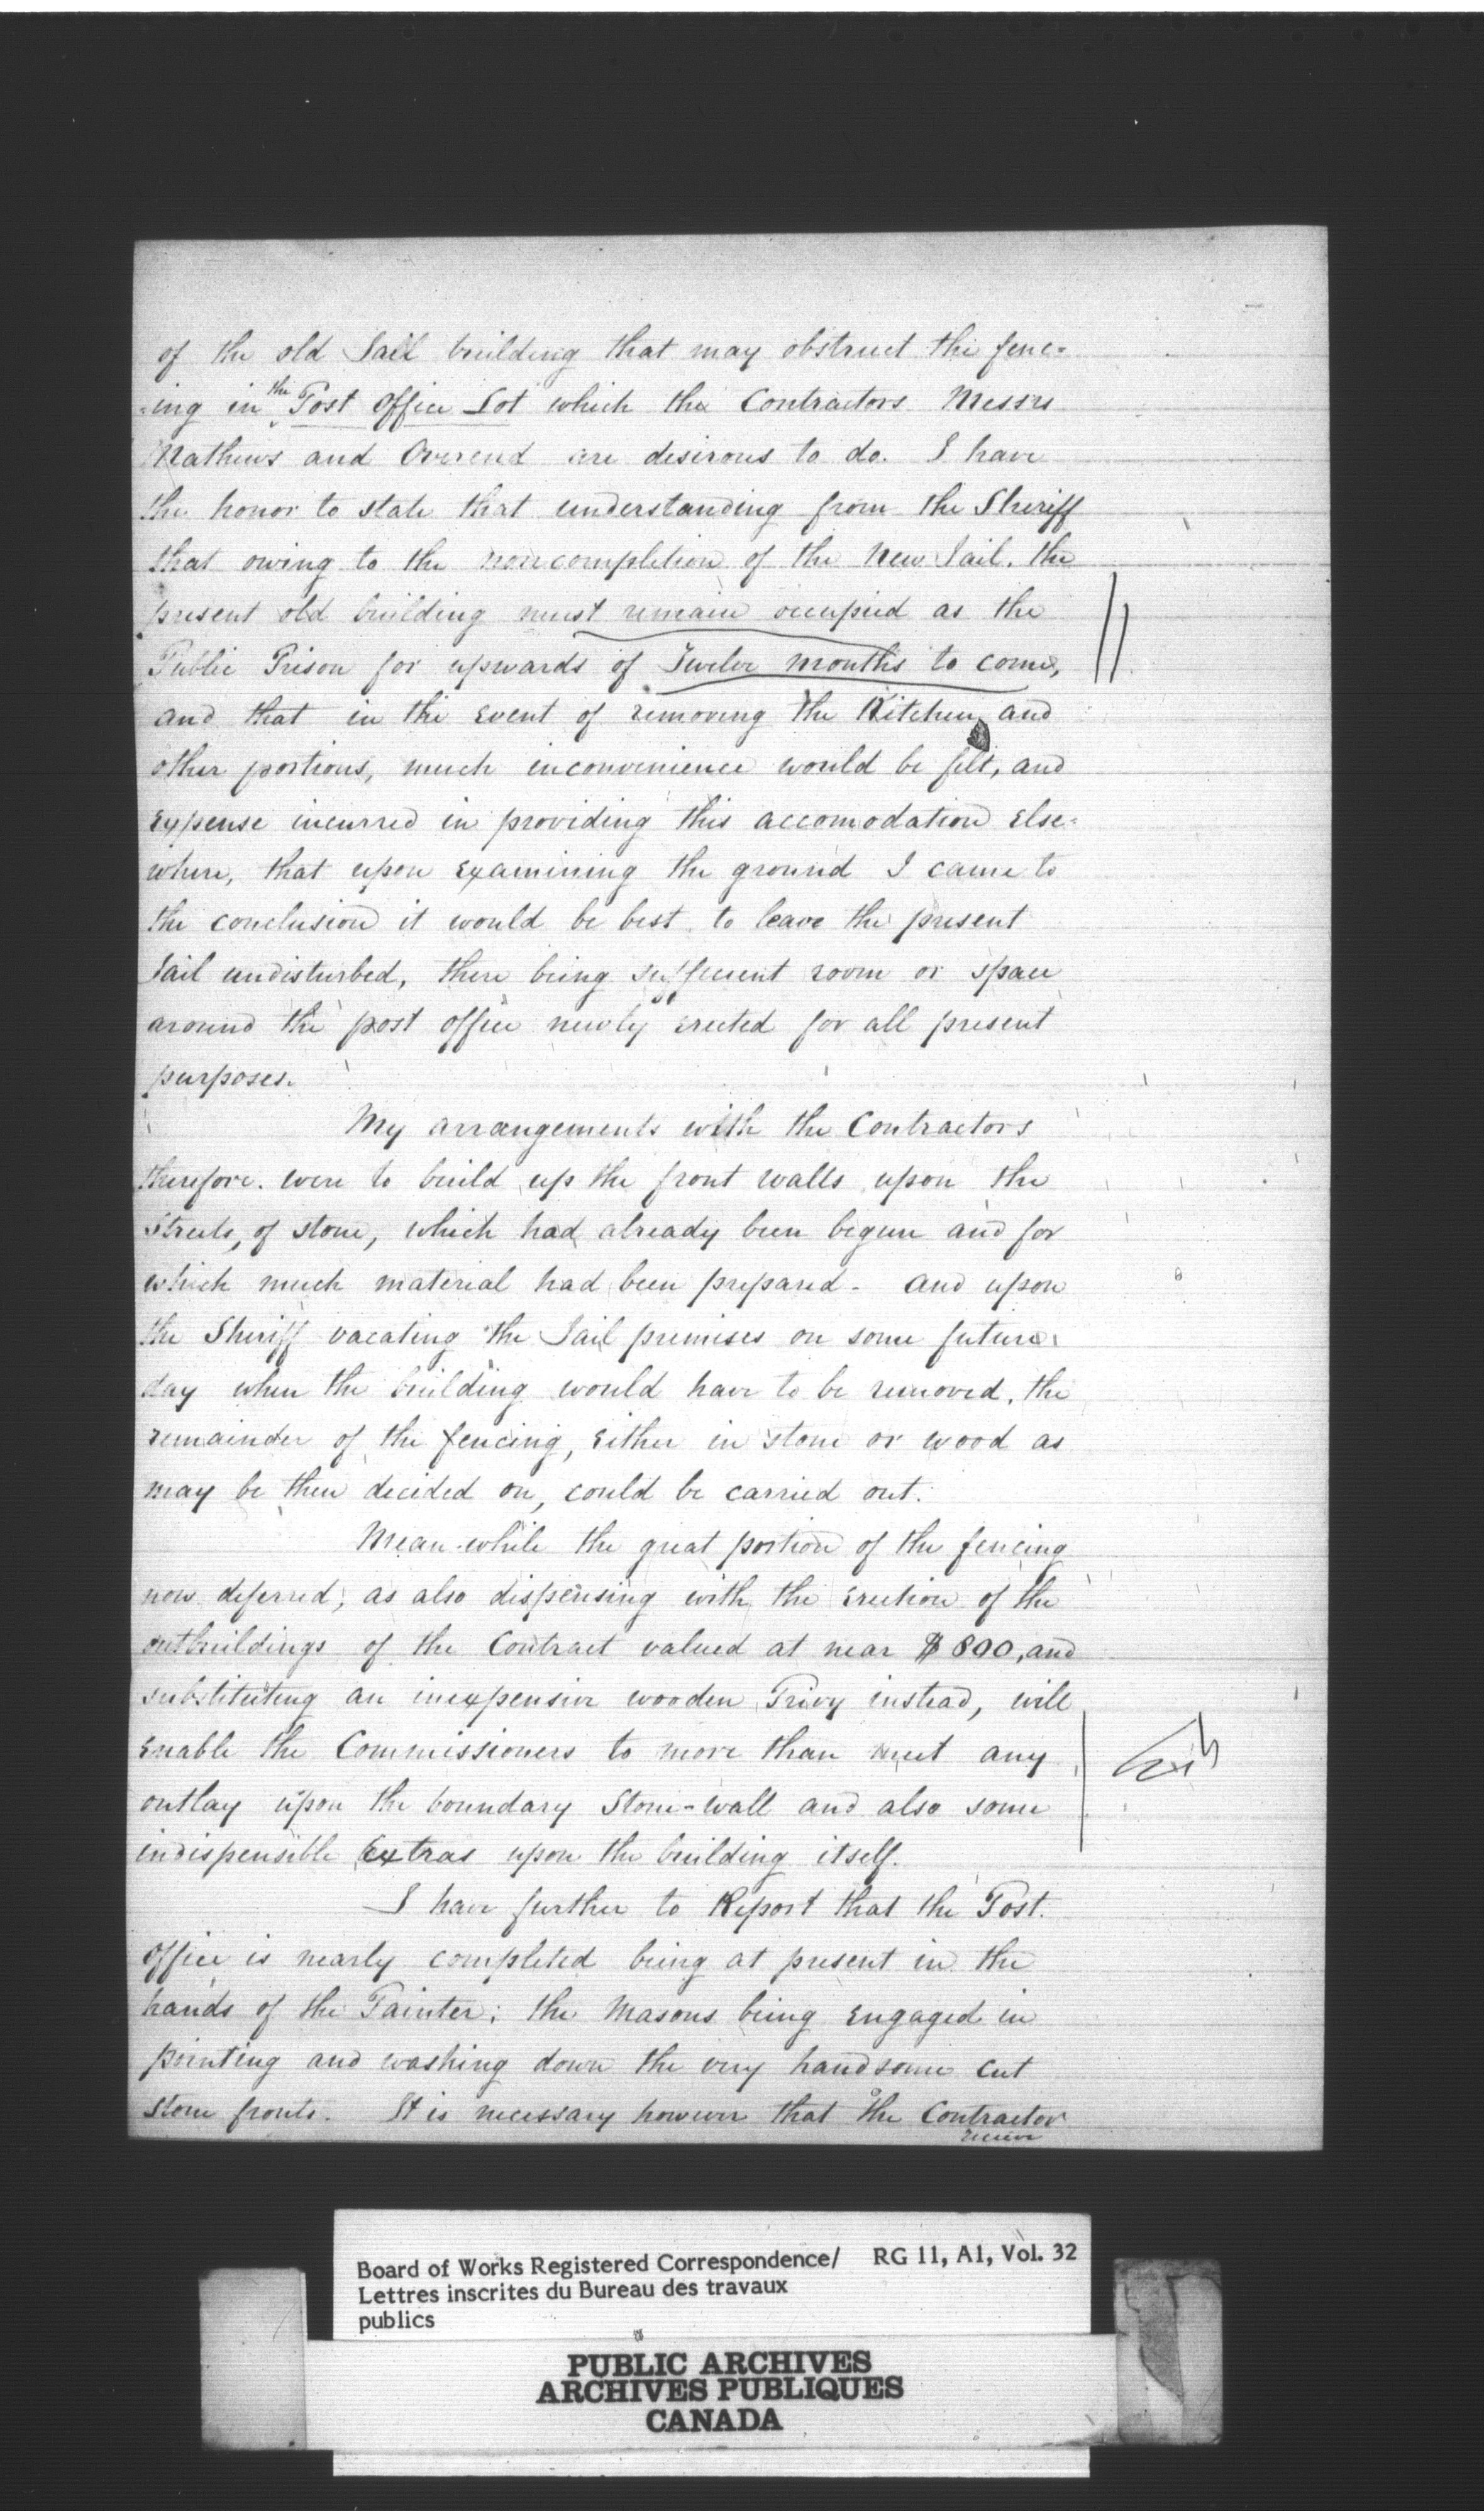 of the old Jail building that may obstruct the fenc=
=ing in the Post Office Lot which the Contractors Messrs
Mathews and Overend are desirous to do. I have
the honor to state that understanding from the Sheriff
that owing to the noncompletion of the New Jail, the
present old building must remain occupied as the
Public Prison for upwards of Twelve months to come,
and that in the event of removing the Kitchen and
other portions, much inconvenience would be felt, and
expense incurred in providing this accomodation else=
where, that upon examining the ground I came to
the conclusion it would be best to leave the present
Jail undisturbed, there being sufficient room or space
around the post office newly erected for all present
purposes.
My arrangements with the Contractors
therefore were to build up the front walls upon the
Streets, of stone, which had already been begun and for
which much material had been prepared - and upon
the Sheriff vacating the Jail premises on some future
day when the building would have to be removed, the
remainder of the fencing, either in stone or wood as
may be then decided on, could be carried out.
Mean-while the great portion of the fencing
now deferred, as also dispensing with the erection of the
outbuildings of the Contract valued at near $800, and
substituting an inexpensive wooden Privy instead, will
enable the Commissioners to more than meet any
outlay upon the boundary Stone-wall and also some
indispensible Extras upon the building itself.
I have further to Report that the Post
Office is nearly completed being at present in the
hands of the Painter; the Masons being engaged in
pointing and washing down the very handsome cut
stone fronts. It is necessary however that the Contractor
receive
Board of Works Registered Correspondence/ RG 11, A1, Vol. 32
Lettres inscrites du Bureau des travaux
publics
PUBLIC ARCHIVES
ARCHIVES PUBLIQUES
CANADA